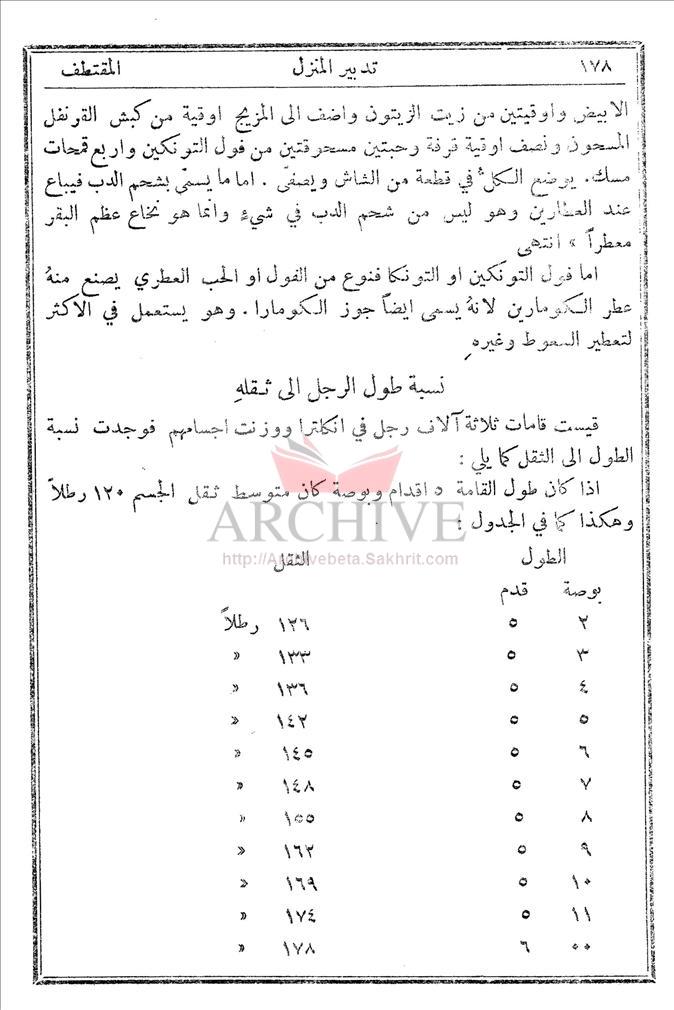 ١٧٨ تدبير المنزل المقتطف
الابيض واوقيتين من زيت الزيتون واضف الى المزيج اوقية من كبش القرنفل
المسحون ونصف اوقية قرفة وحبتين مسحوقتين من فول التونكين واربع قمحات
مسك. يوضع الكلُّ في قطعة من الشاش ويصفَّى. اما ما يسمَّى بشحم الدب فيباع
عند العطارين وهو ليس من شحم الدب في شيءٍ وانما هو نخاع عظم البقر
معطراً» انتهى
اما فول التونكين او التونكا فنوع من الفول او الحب العطري يصنع منهُ
عطر الكومارين لانهُ يسمى ايضاً جوز الكومارا. وهو يستعمل في الاكثر
لتعطير السعوط وغيره
نسبة طول الرجل الى ثقلهِ
قيست قامات ثلاثة آلاف رجل في انكلترا ووزنت اجسامهم فوجدت نسبة
الطول الى الثقل كما يلي:
اذا كان طول القامة ٥ اقدام وبوصة كان متوسط ثقل الجسم ١٢٠ رطلاً
وهكذا كما في الجدول:
ARCHIVE
http://Archivebeta.Sakhrit.com
الطول الثقل
بوصة قدم
٢ ٥ ١٢٦ رطلاً
٣ ٥ ١٣٣ »
٤ ٥ ١٣٦ »
٥ ٥ ١٤٢ »
٦ ٥ ١٤٥ »
٧ ٥ ١٤٨ »
٨ ٥ ١٥٥ »
٩ ٥ ١٦٢ »
١٠ ٥ ١٦٩ »
١١ ٥ ١٧٤ »
٠٠ ٦ ١٧٨ »